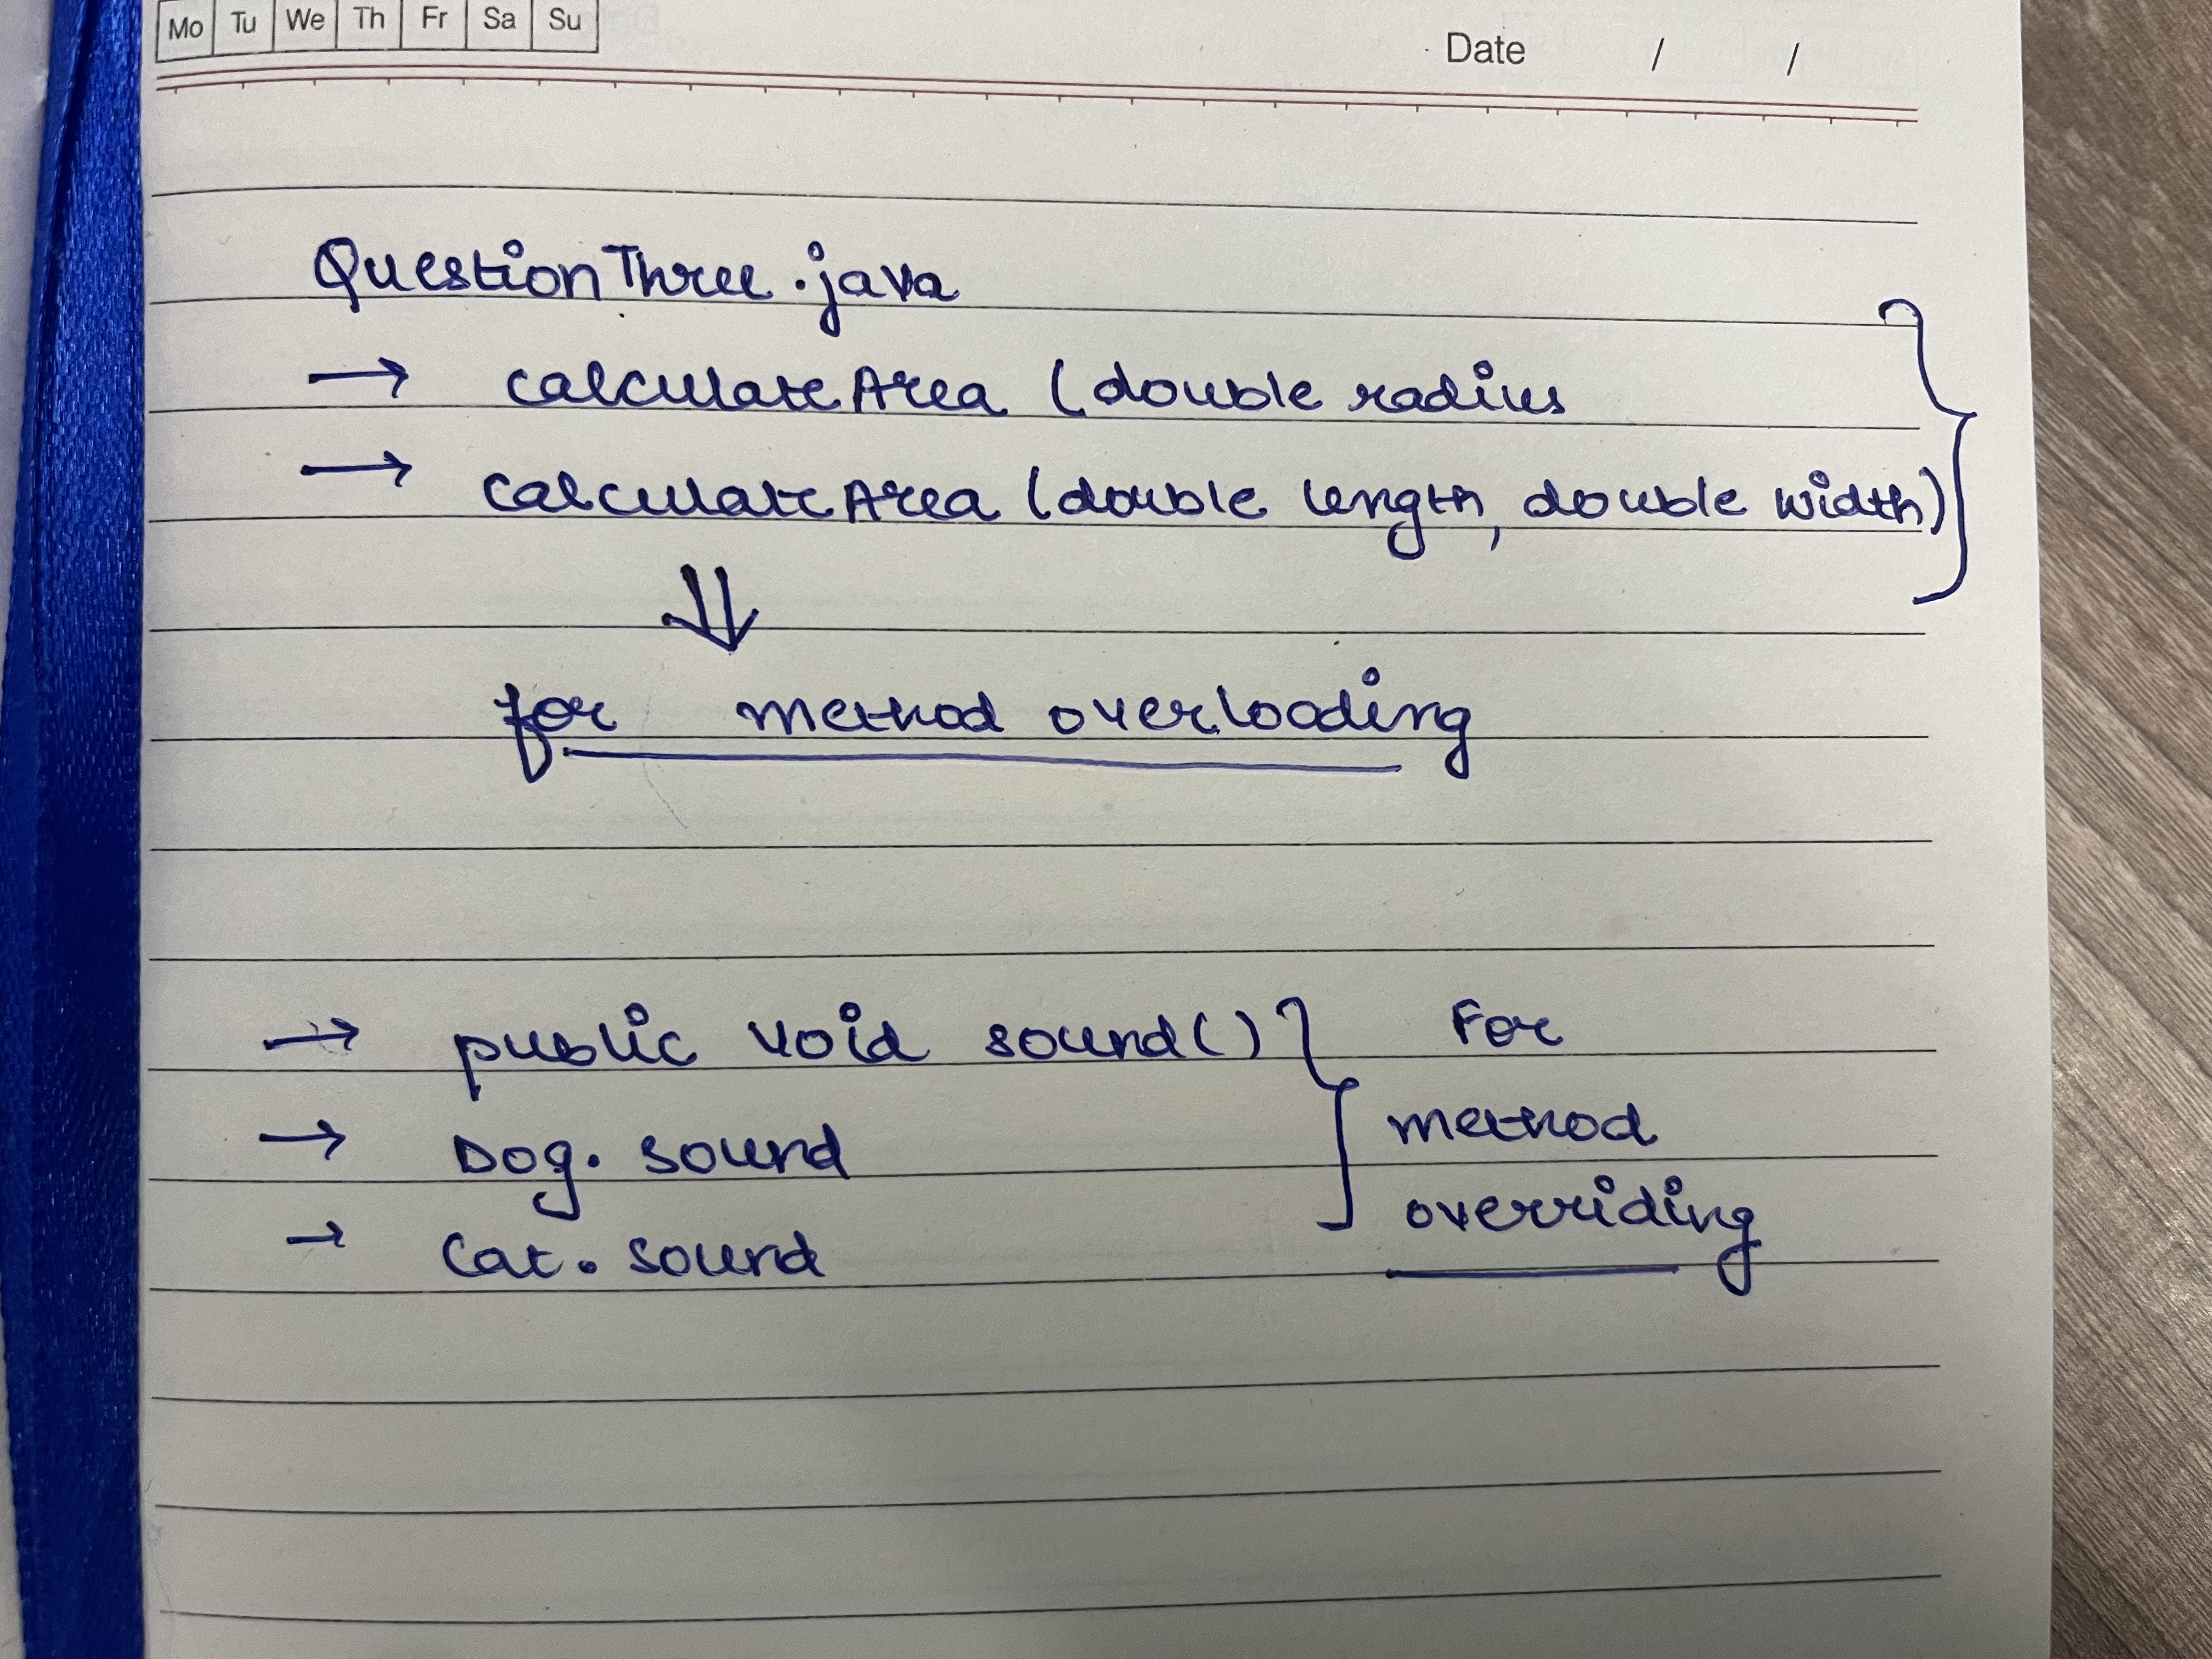 Mo Tu We Th Fr Sa Su Date / /
QuestionThree.java
→ calculateArea (double radius
→ calculateArea (double length, double width)
for method overloading
→ public void sound() For
→ Dog. sound method
→ Cat. sound overriding